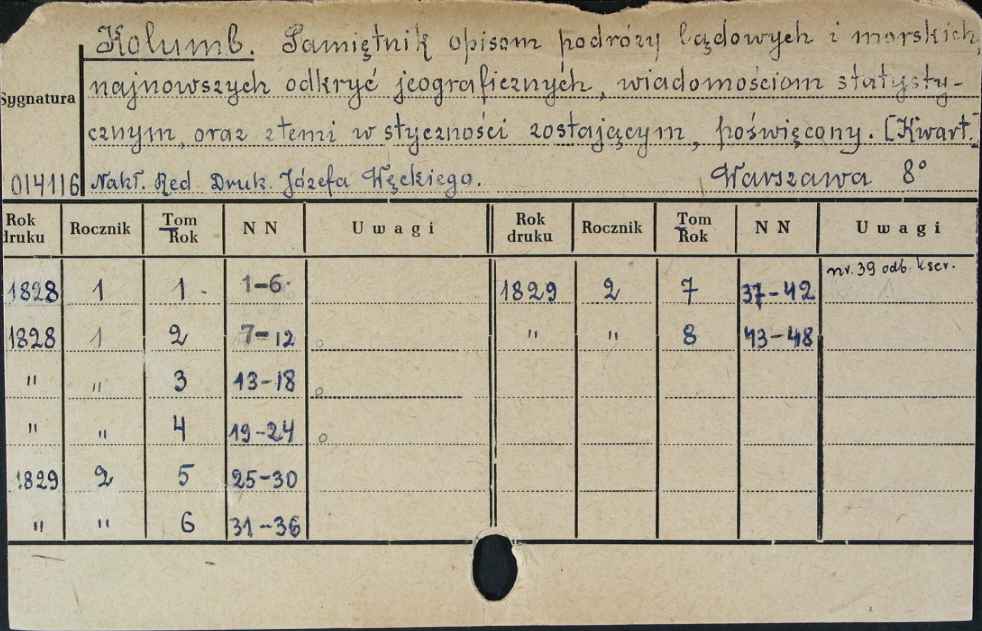 Kolumb. Pamiętnik opisom podróży lądowych i morskich,
najnowszych odkryć jeograficznych, wiadomościom statysty-
Sygnatura
cznym, oraz z temi w styczności zostającym, poświęcony. [Kwart.]
014116 Nakł. Red. Druk. Józefa Węckiego. Warszawa 8°
Rok druku Rocznik Tom Rok N N Uwagi Rok druku Rocznik Tom Rok N N Uwagi
1828 1 1 1-6 1829 2 7 37-42 nr. 39 odb. kser.
1828 1 2 7-12 " " 8 43-48
" " 3 13-18
" " 4 19-24
1829 2 5 25-30
" " 6 31-36